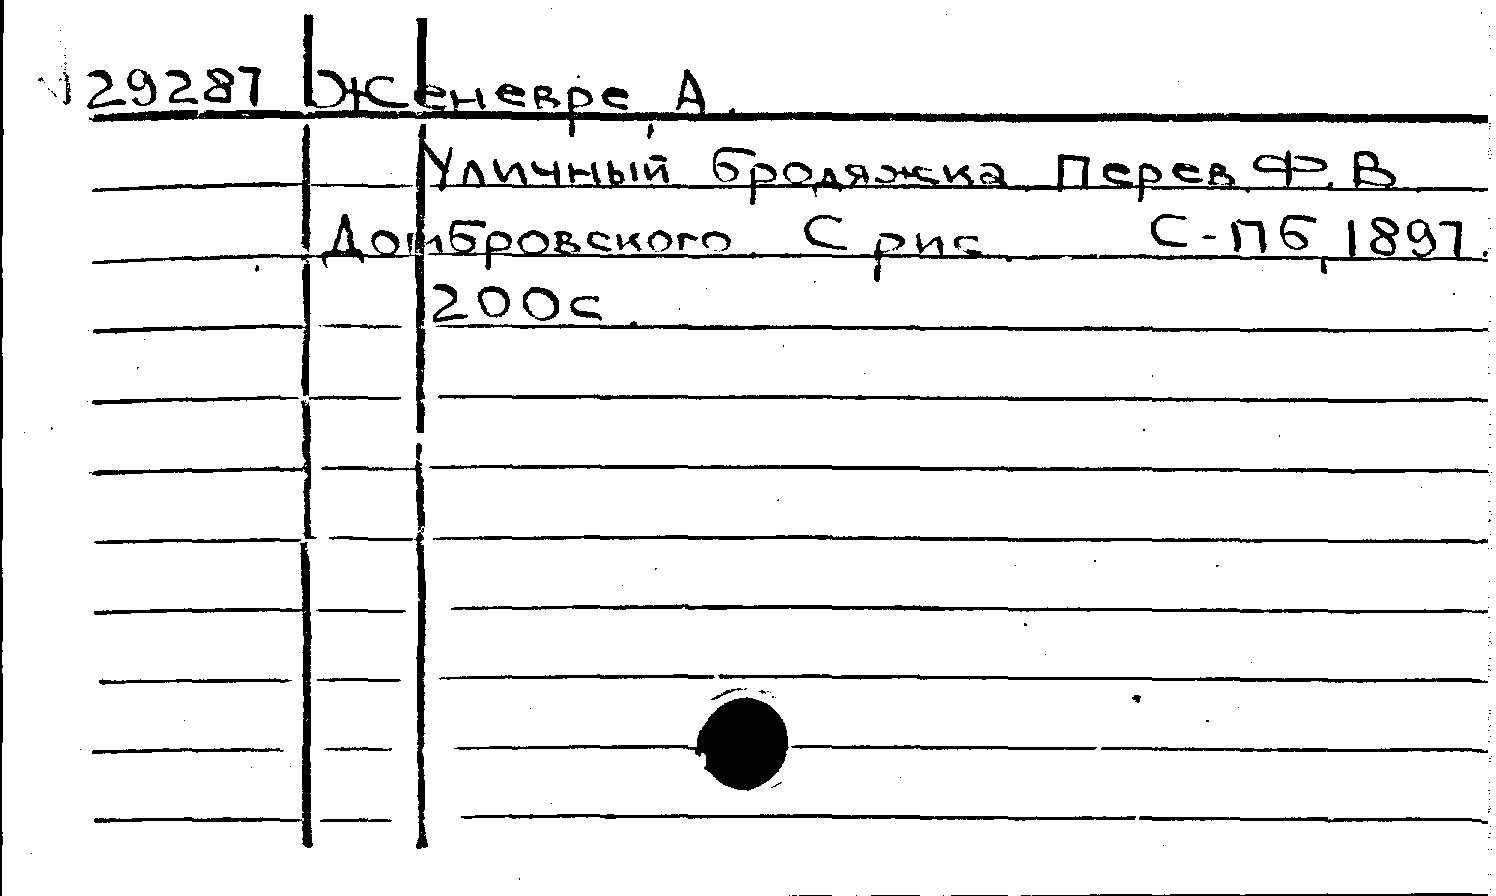 29287 Женевре, А.
Уличный бродяжка. Перев. Ф. В.
Домбровского. С рис. С-Пб, 1897.
200с.